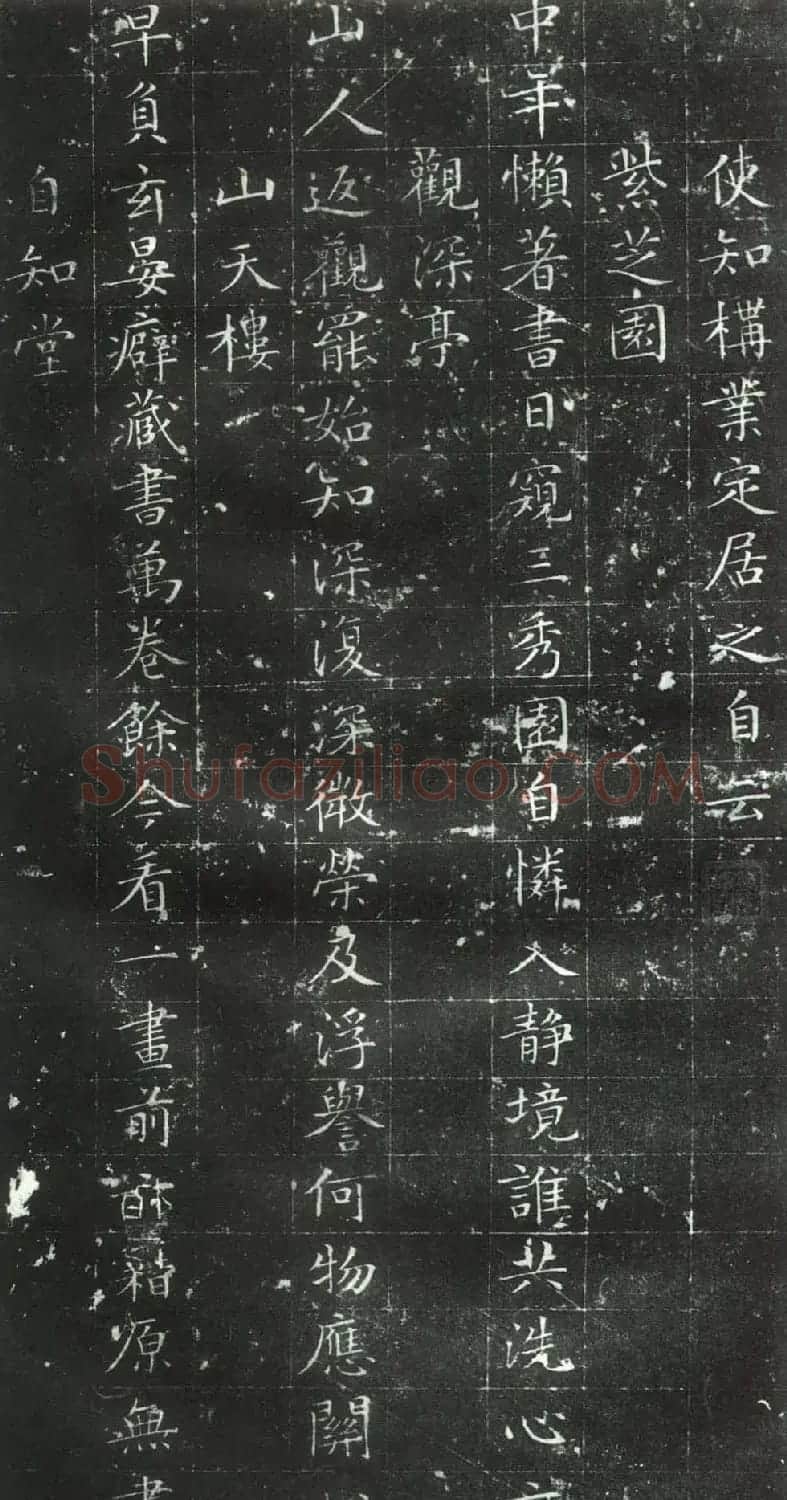 使知構業定居之自云
紫芝園
中年懶著書日窺三秀園自憐入静境誰共洗心
觀深亭
山人返觀罷始知深復深微榮及浮譽何物應關
山天樓
早負玄晏癖藏書萬卷餘今看一畫前 原無書
自知堂
Shufaziliao.COM